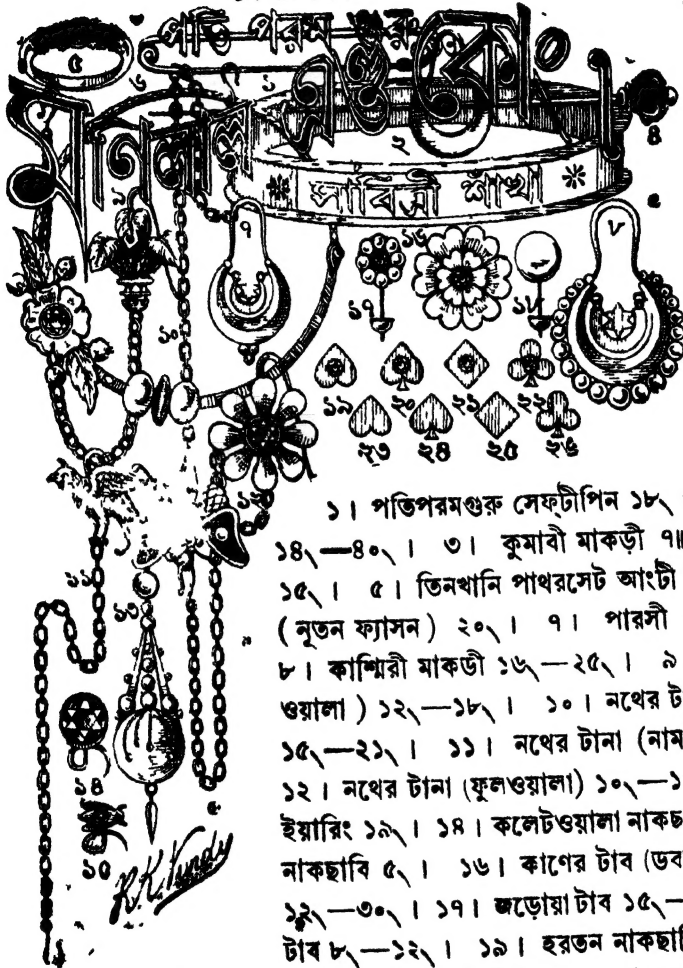 পতি পরম গুরু
সাবিত্রী শাঁখা
৫
৬
৭
১
২
৩
৪
৯
৭
১৬
৮
১০
১৭
১৮
১৯
২০
২১
২২
২৩
২৪
২৫
২৬
১২
১১
১৩
১৪
১৫
১। পতিপরমগুরু সেফ্‌টীপিন ১৮৲
১৪৲—৪০৲। ৩। কুমাবী মাকড়ী ৭॥
১৫৲। ৫। তিনখানি পাথরসেট আংটী
( নূতন ফ্যাসন ) ২০৲। ৭। পারসী
৮। কাশ্মিরী মাকডী ১৬৲—২৫৲। ৯
ওয়ালা ) ১২৲—১৮৲। ১০। নথের ট
১৫৲—২১৲। ১১। নথের টানা (নাম
১২। নথের টানা (ফুলওয়ালা) ১০৲—১
ইয়ারিং ১৯৲। ১৪। কলেটওয়ালা নাকছ
নাকছাবি ৫৲। ১৬। কাণের টাব (ডব
১২৲—৩০৲। ১৭। জড়োয়া টাব ১৫৲—
টাব ৮৲—১২৲। ১৯। হরতন নাকছাবি